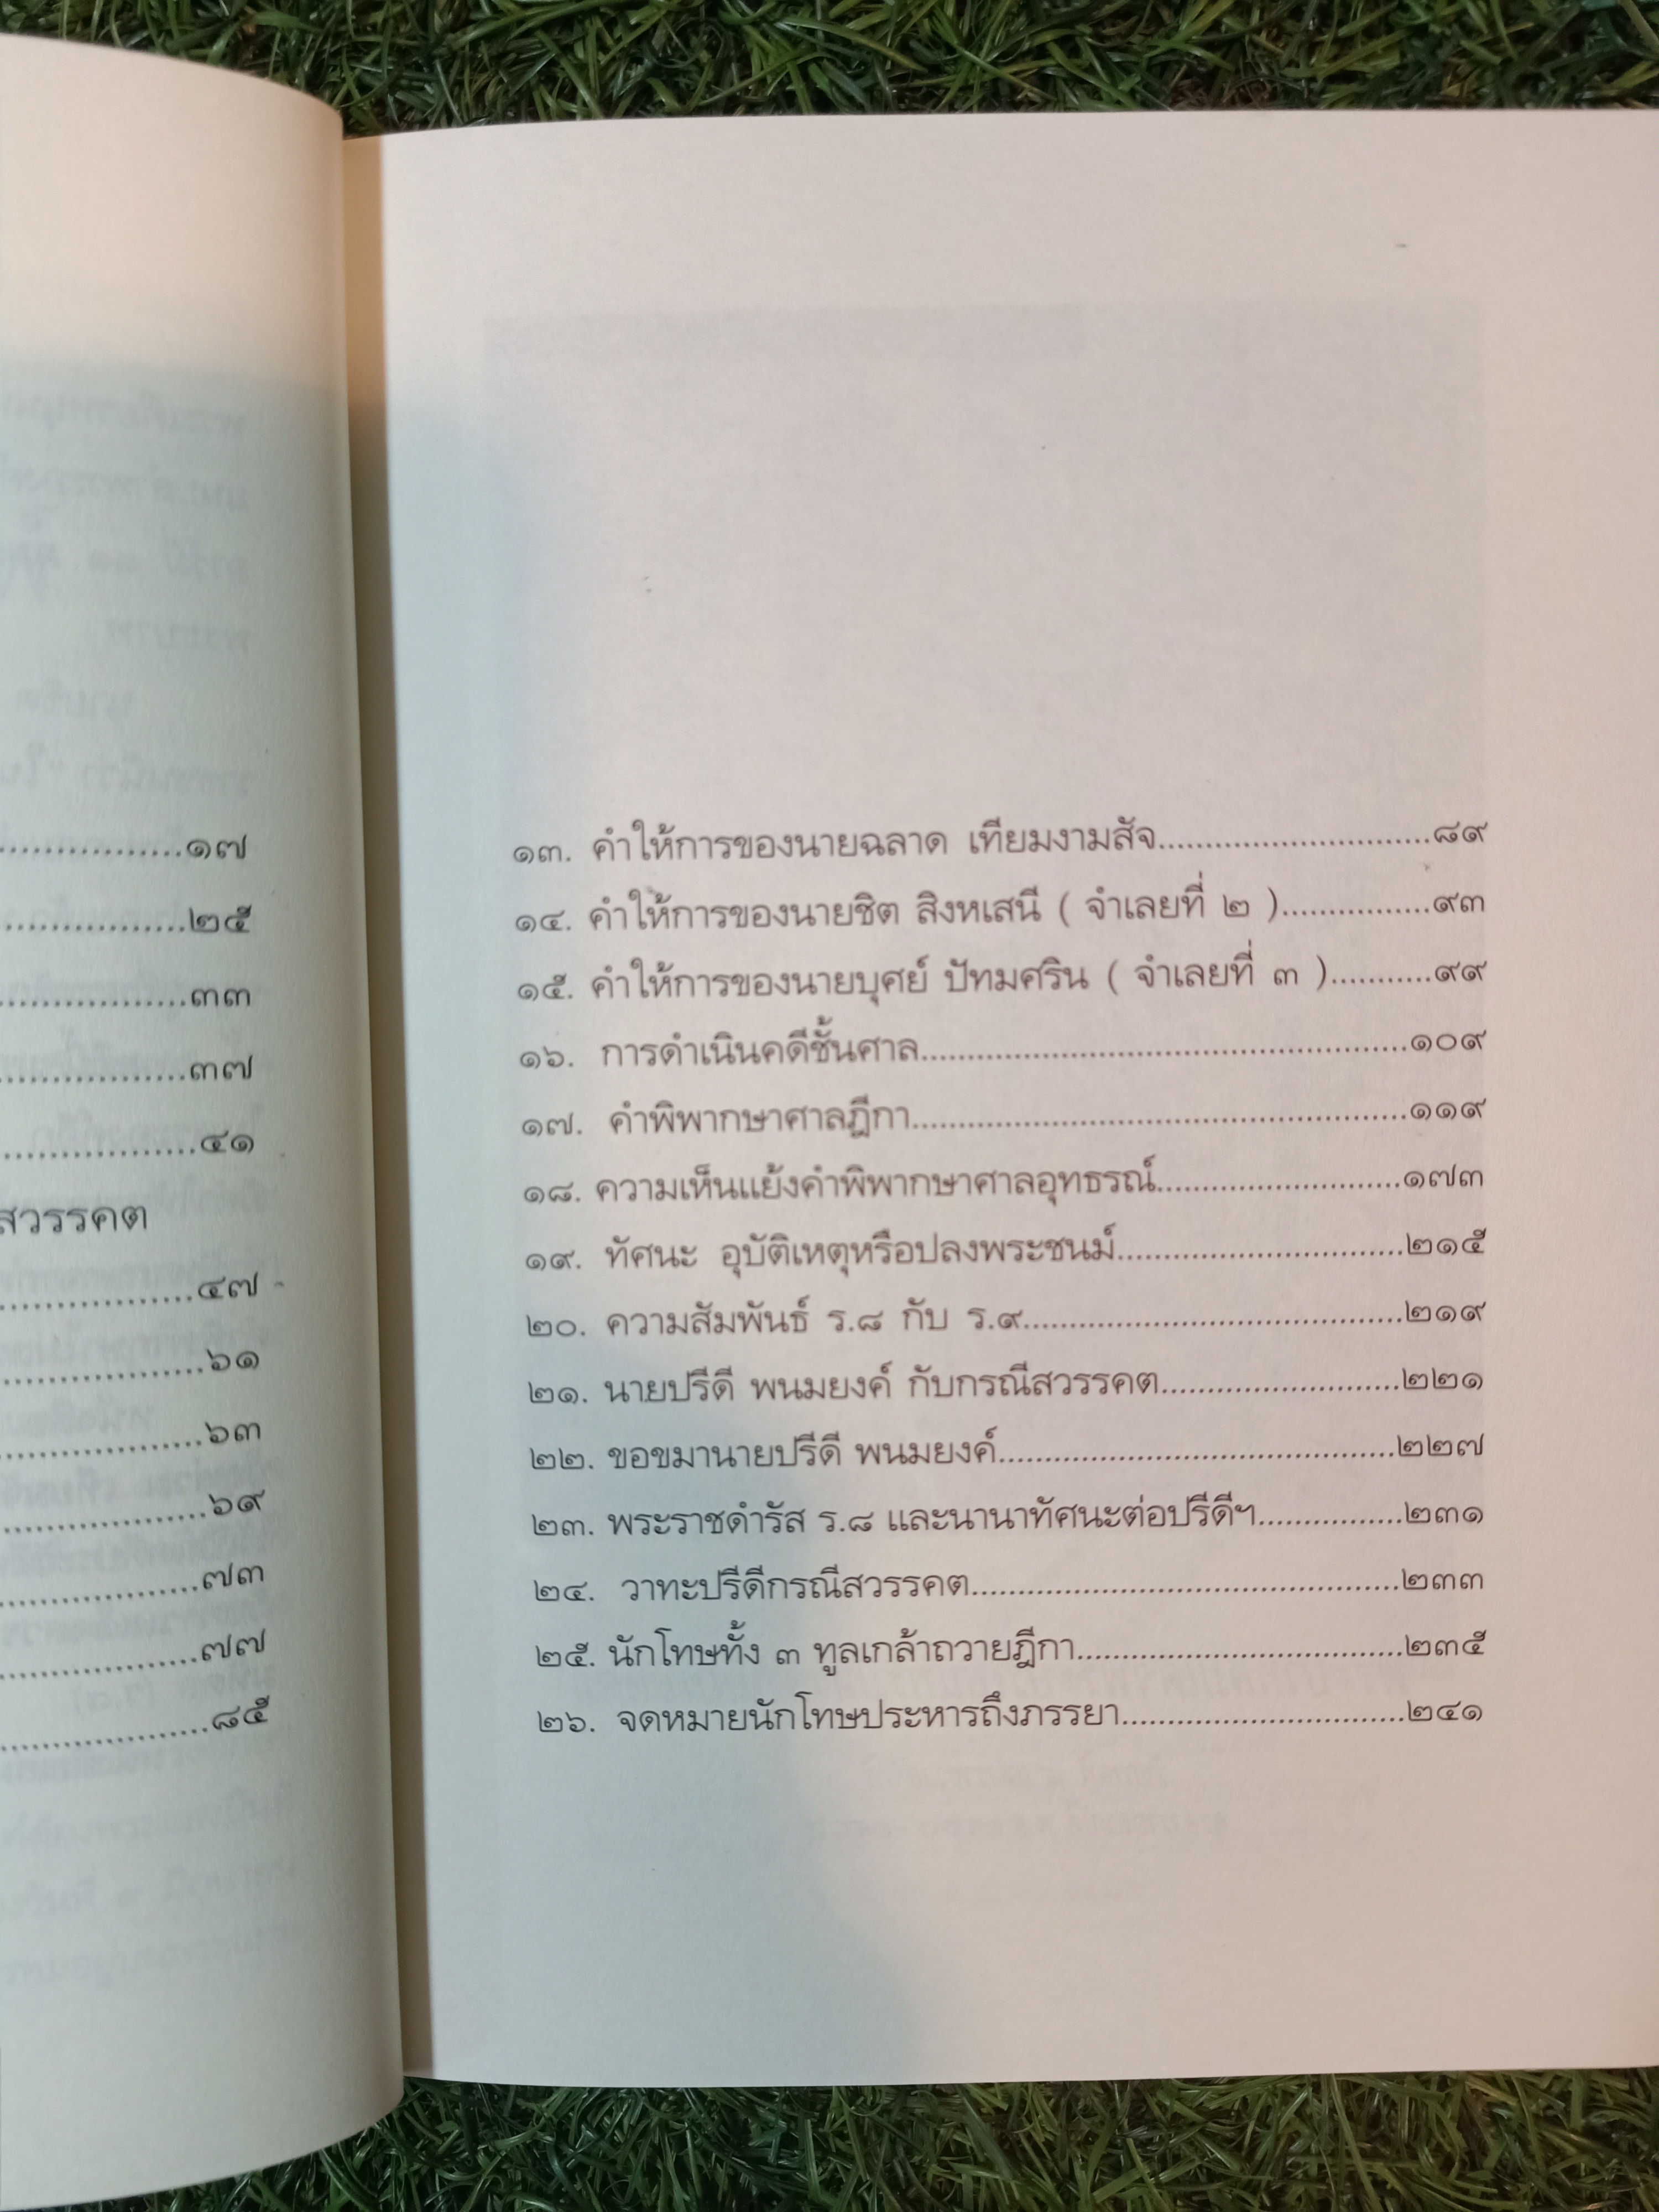 .................๑๗
.................๒๕
.................๓๓
.................๓๗
.................๔๑
สวรรคต
.................๔๗
.................๖๑
.................๖๓
.................๖๙
.................๗๓
.................๗๗
.................๘๕
๑๓. คำให้การของนายฉลาด เทียมงามสัจ.............................๘๙
๑๔. คำให้การของนายชิต สิงหเสนี ( จำเลยที่ ๒ )................๙๓
๑๕. คำให้การของนายบุศย์ ปัทมศริน ( จำเลยที่ ๓ )...........๙๙
๑๖. การดำเนินคดีชั้นศาล....................................................๑๐๙
๑๗. คำพิพากษาศาลฎีกา.....................................................๑๑๙
๑๘. ความเห็นแย้งคำพิพากษาศาลอุทธรณ์..........................๑๗๓
๑๙. ทัศนะ อุบัติเหตุหรือปลงพระชนม์...............................๒๑๕
๒๐. ความสัมพันธ์ ร.๘ กับ ร.๙.........................................๒๑๙
๒๑. นายปรีดี พนมยงค์ กับกรณีสวรรคต..........................๒๒๑
๒๒. ขอขมานายปรีดี พนมยงค์...........................................๒๒๗
๒๓. พระราชดำรัส ร.๘ และนานาทัศนะต่อปรีดีฯ................๒๓๑
๒๔. วาทะปรีดีกรณีสวรรคต..............................................๒๓๓
๒๕. นักโทษทั้ง ๓ ทูลเกล้าถวายฎีกา...................................๒๓๕
๒๖. จดหมายนักโทษประหารถึงภรรยา...............................๒๔๑